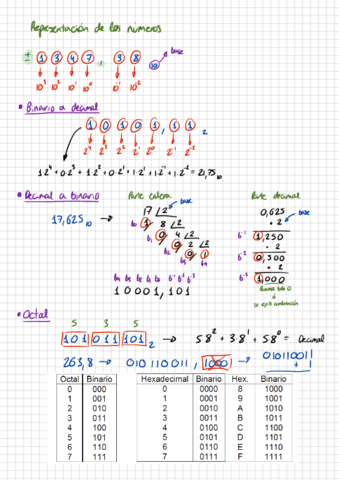 Representación de los numeros
± 1 3 4 7 , 3 8 10 base
10³ 10² 10¹ 10⁰ 10⁻¹ 10⁻²
• Binario a decimal
1 0 1 0 1 , 1 1 ₂
2⁴ 2³ 2² 2¹ 2⁰ 2⁻¹ 2⁻²
1·2⁴ + 0·2³ + 1·2² + 0·2¹ + 1·2⁰ + 1·2⁻¹ + 1·2⁻² = 21,75₁₀
• Decimal a binario
Parte entera
Parte decimal
17,625₁₀
17 /2 base
b₀ 1 8 /2
b₁ 0 4 /2
b₂ 0 2 /2
b₃ 0 1
b₄
0,625
· 2 base
b⁻¹ 1,250
· 2
b⁻² 0,500
· 2
b⁻³ 1,000
Hasta todo 0
ó
se repite combinación
b₄ b₃ b₂ b₁ b₀ b⁻¹ b⁻² b⁻³
1 0 0 0 1, 1 0 1
• Octal
5 3 5
101 011 101 ₂ → 5·8² + 3·8¹ + 5·8⁰ = Decimal
263,8 → 010 110 011 , 1000 → 010110011
+ 1
Octal Binario
0 000
1 001
2 010
3 011
4 100
5 101
6 110
7 111
Hexadecimal Binario Hex. Binario
0 0000 8 1000
1 0001 9 1001
2 0010 A 1010
3 0011 B 1011
4 0100 C 1100
5 0101 D 1101
6 0110 E 1110
7 0111 F 1111